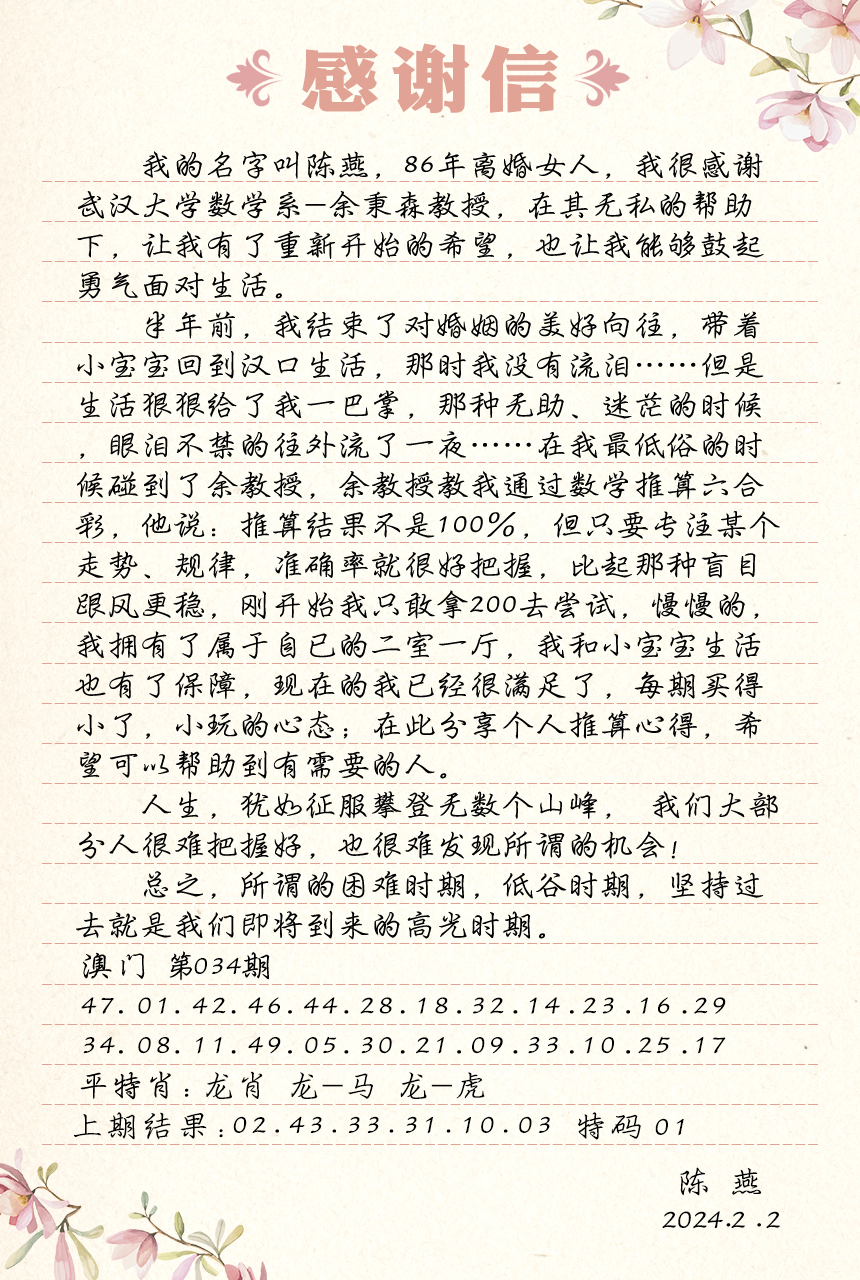 感谢信
我的名字叫陈燕，86年离婚女人，我很感谢
武汉大学数学系—余秉森教授，在其无私的帮助
下，让我有了重新开始的希望，也让我能够鼓起
勇气面对生活。
半年前，我结束了对婚姻的美好向往，带着
小宝宝回到汉口生活，那时我没有流泪……但是
生活狠狠给了我一巴掌，那种无助、迷茫的时候
，眼泪不禁的往外流了一夜……在我最低俗的时
候碰到了余教授，余教授教我通过数学推算六合
彩，他说：推算结果不是100%，但只要专注某个
走势、规律，准确率就很好把握，比起那种盲目
跟风更稳，刚开始我只敢拿200去尝试，慢慢的，
我拥有了属于自已的二室一厅，我和小宝宝生活
也有了保障，现在的我已经很满足了，每期买得
小了，小玩的心态；在此分享个人推算心得，希
望可以帮助到有需要的人。
人生，犹如征服攀登无数个山峰， 我们大部
分人很难把握好，也很难发现所谓的机会！
总之，所谓的困难时期，低谷时期，坚持过
去就是我们即将到来的高光时期。
澳门 第034期
47.01.42.46.44.28.18.32.14.23.16.29
34.08.11.49.05.30.21.09.33.10.25.17
平特肖：龙肖 龙—马 龙—虎
上期结果：02.43.33.31.10.03 特码 01
陈 燕
2024.2.2